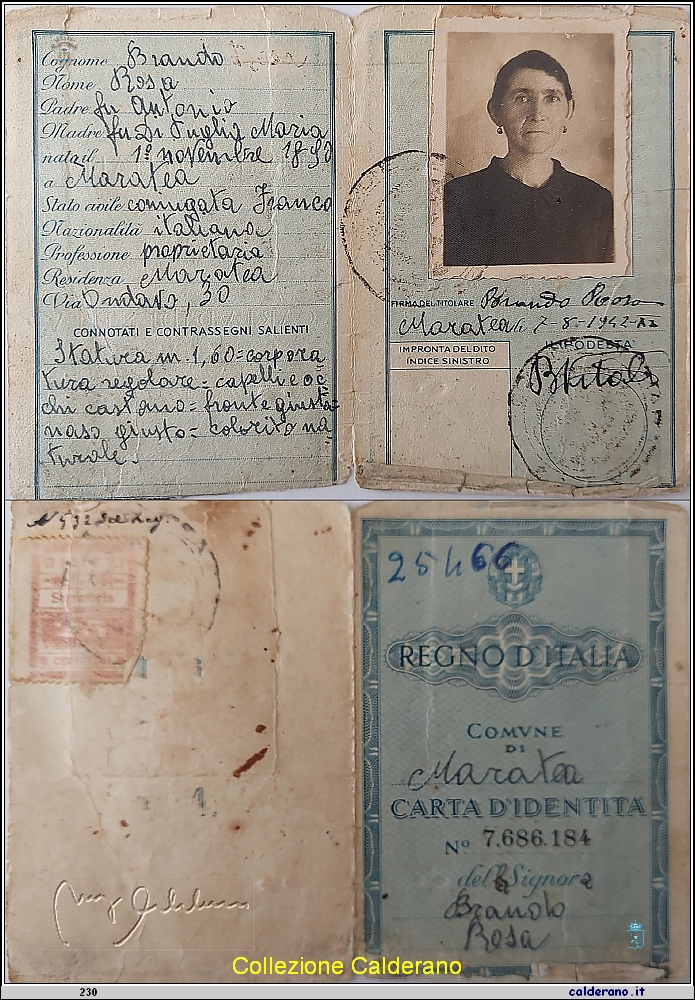 Cognome Brando
Nome Rosa
Padre fu Antonio
Madre fu Di Puglia Maria
nata il 1º novembre 1890
a Maratea
Stato civile coniugata Franco
Nazionalità italiana
Professione proprietaria
Residenza Maratea
Via Ondavo, 30
CONNOTATI E CONTRASSEGNI SALIENTI
Statura m. 1,60 = corpora
tura regolare = capelli e oc
chi castano = fronte giusta =
naso giusto = colorito na
turale.
FIRMA DEL TITOLARE Brando Rosa
Maratea li 7-8-1942-XX
IMPRONTA DEL DITO
INDICE SINISTRO
IL PODESTÀ
N 532 del Reg.
25466
REGNO D'ITALIA
COMVNE
DI
Maratea
CARTA D'IDENTITÀ
Nº 7.686.184
della Signora
Brando
Rosa
Collezione Calderano
230
calderano.it